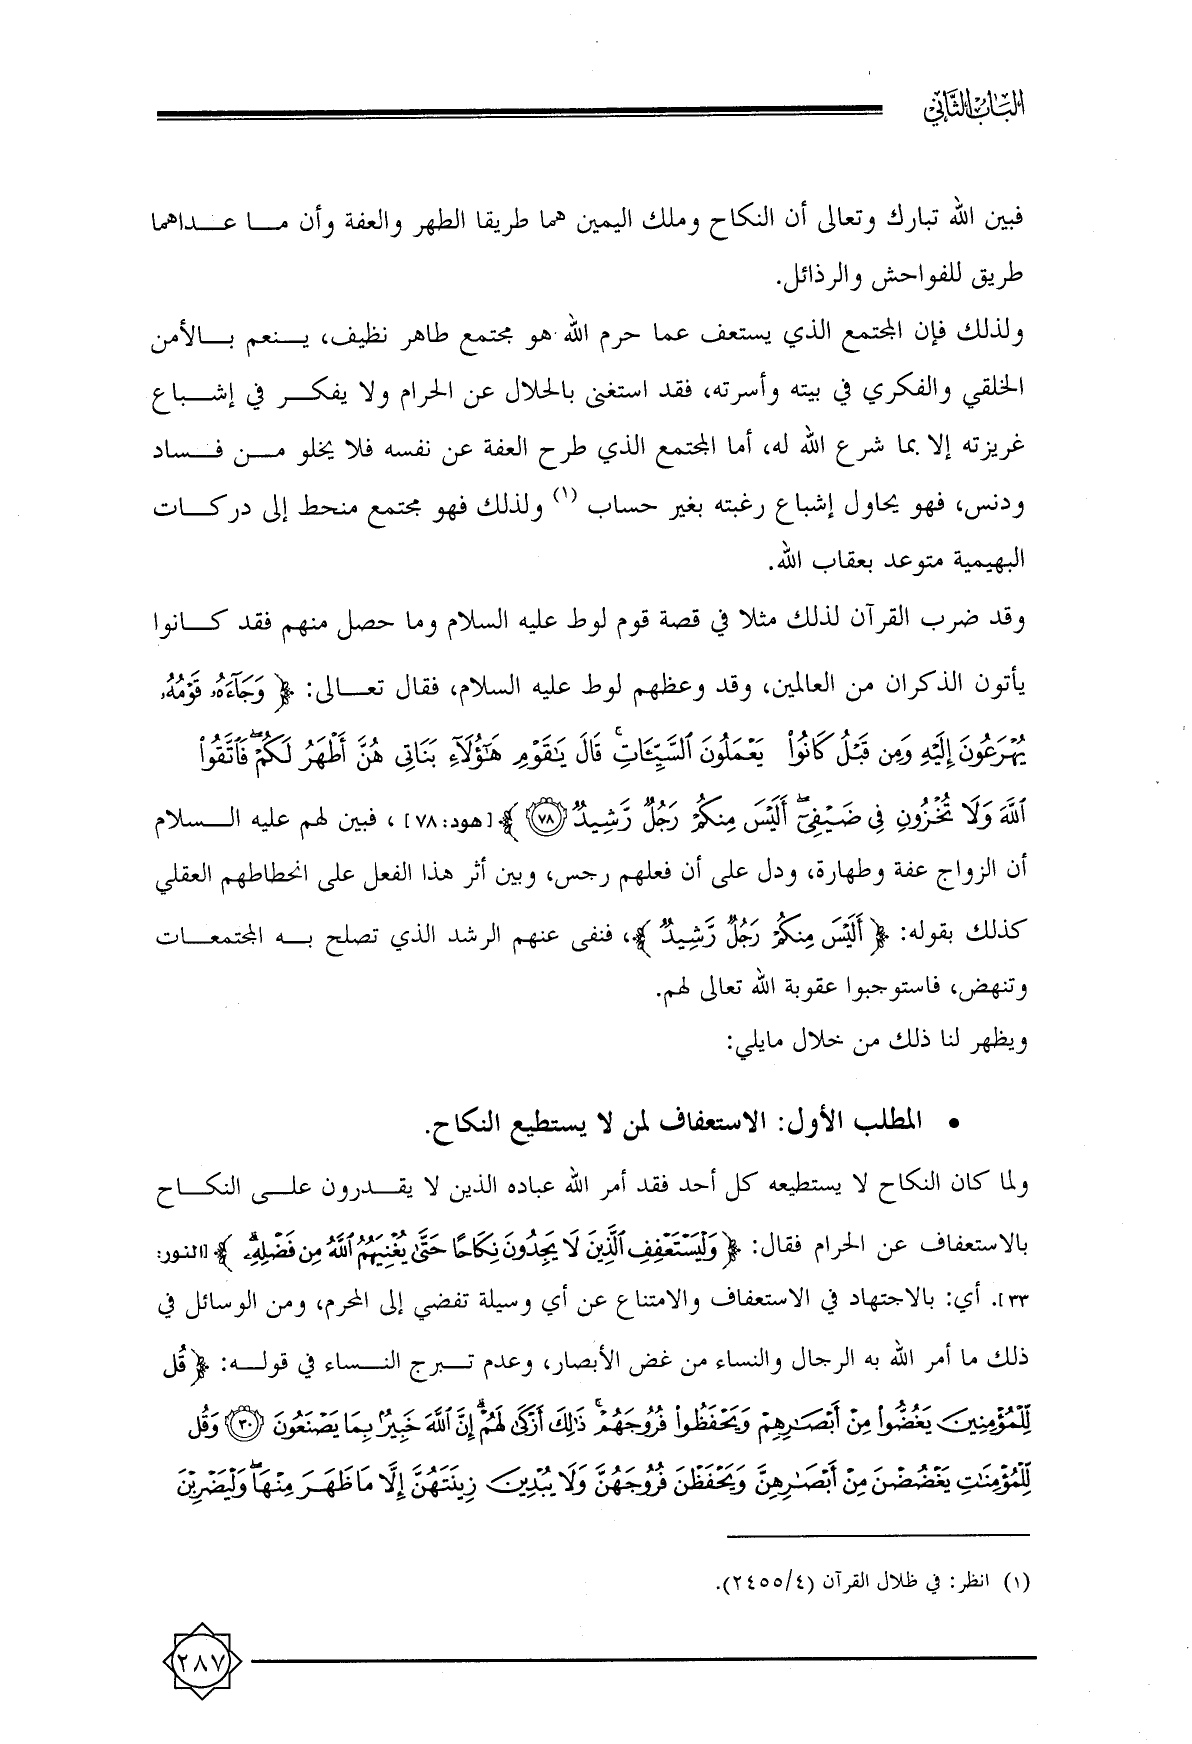 الباب الثاني
فبين الله تبارك وتعالى أن النكاح وملك اليمين هما طريقا الطهر والعفة وأن ما عداهما
طريق للفواحش والرذائل.
ولذلك فإن المجتمع الذي يستعف عما حرم الله هو مجتمع طاهر نظيف، ينعم بالأمن
الخلقي والفكري في بيته وأسرته، فقد استغنى بالحلال عن الحرام ولا يفكر في إشباع
غريزته إلا بما شرع الله له، أما المجتمع الذي طرح العفة عن نفسه فلا يخلو من فساد
ودنس، فهو يحاول إشباع رغبته بغير حساب (١) ولذلك فهو مجتمع منحط إلى دركات
البهيمية متوعد بعقاب الله.
وقد ضرب القرآن لذلك مثلا في قصة قوم لوط عليه السلام وما حصل منهم فقد كانوا
يأتون الذكران من العالمين، وقد وعظهم لوط عليه السلام، فقال تعالى: ﴿ وَجَآءَهُۥ قَوْمُهُۥ
يُهْرَعُونَ إِلَيْهِ وَمِن قَبْلُ كَانُوا۟ يَعْمَلُونَ ٱلسَّيِّـَٔاتِ ۚ قَالَ يَـٰقَوْمِ هَـٰٓؤُلَآءِ بَنَاتِى هُنَّ أَطْهَرُ لَكُمْ ۖ فَٱتَّقُوا۟
ٱللَّهَ وَلَا تُخْزُونِ فِى ضَيْفِىٓ ۖ أَلَيْسَ مِنكُمْ رَجُلٌ رَّشِيدٌ ٧٨ ﴾ [هود: ٧٨] ، فبين لهم عليه السلام
أن الزواج عفة وطهارة، ودل على أن فعلهم رجس، وبين أثر هذا الفعل على انحطاطهم العقلي
كذلك بقوله: ﴿ أَلَيْسَ مِنكُمْ رَجُلٌ رَّشِيدٌ ﴾، فنفى عنهم الرشد الذي تصلح به المجتمعات
وتنهض، فاستوجبوا عقوبة الله تعالى لهم.
ويظهر لنا ذلك من خلال مايلي:
• المطلب الأول: الاستعفاف لمن لا يستطيع النكاح.
ولما كان النكاح لا يستطيعه كل أحد فقد أمر الله عباده الذين لا يقدرون على النكاح
بالاستعفاف عن الحرام فقال: ﴿ وَلْيَسْتَعْفِفِ ٱلَّذِينَ لَا يَجِدُونَ نِكَاحًا حَتَّىٰ يُغْنِيَهُمُ ٱللَّهُ مِن فَضْلِهِۦ ۗ ﴾ [النور:
٣٣]. أي: بالاجتهاد في الاستعفاف والامتناع عن أي وسيلة تفضي إلى المحرم، ومن الوسائل في
ذلك ما أمر الله به الرجال والنساء من غض الأبصار، وعدم تبرج النساء في قوله: ﴿ قُل
لِّلْمُؤْمِنِينَ يَغُضُّوا۟ مِنْ أَبْصَـٰرِهِمْ وَيَحْفَظُوا۟ فُرُوجَهُمْ ۚ ذَٰلِكَ أَزْكَىٰ لَهُمْ ۗ إِنَّ ٱللَّهَ خَبِيرٌۢ بِمَا يَصْنَعُونَ ٣٠ وَقُل
لِّلْمُؤْمِنَـٰتِ يَغْضُضْنَ مِنْ أَبْصَـٰرِهِنَّ وَيَحْفَظْنَ فُرُوجَهُنَّ وَلَا يُبْدِينَ زِينَتَهُنَّ إِلَّا مَا ظَهَرَ مِنْهَا ۖ وَلْيَضْرِبْنَ
(١) انظر: في ظلال القرآن (٢٤٥٥/٤).
٢٨٧